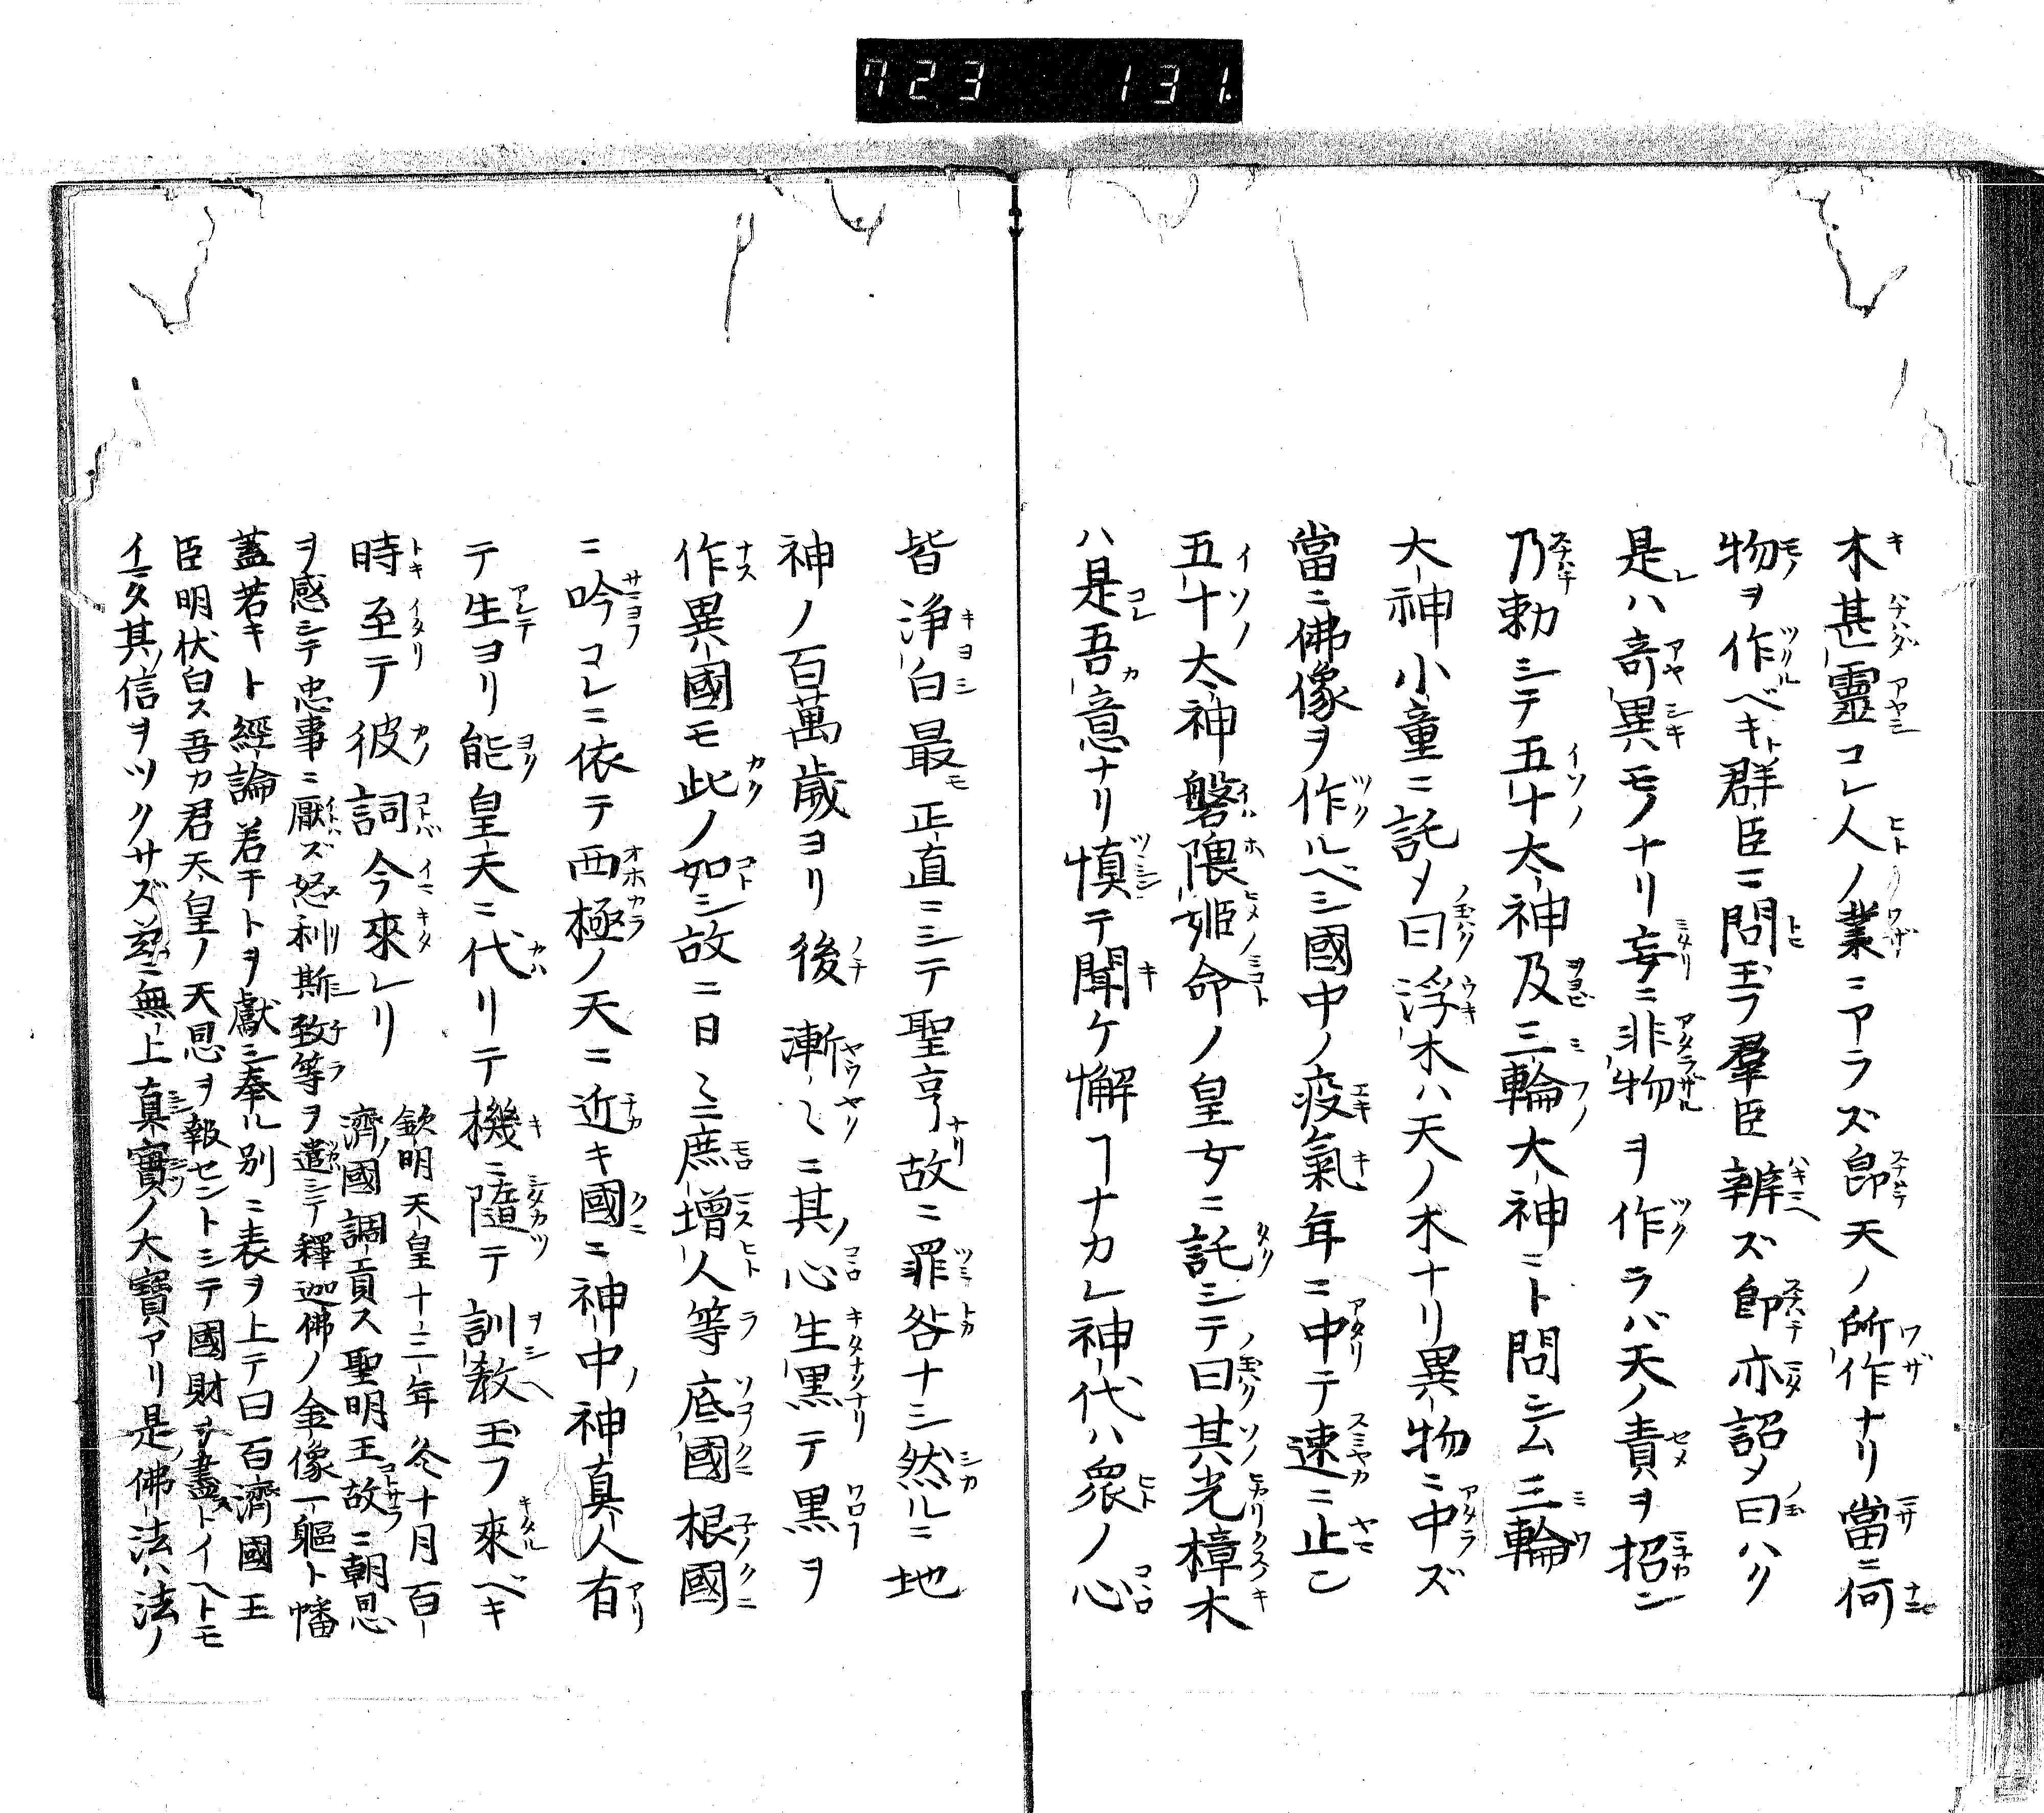 723 131.
木甚靈コレ人ノ業ニアラズ昂天ノ所作ナリ當ニ何
物ヲ作ベキト群臣ニ問玉フ羣臣辨ズ卽亦詔メ曰ハク
是レハ奇異モノナリ妄ニ非物ヲ作ラバ天ノ責ヲ招ン
乃勅シテ五十太神及三輪大神ニト問ニ云三輪
大神小童ニ託メ曰浮木ハ天ノ木ナリ異物ニ中ズ
當ニ佛像ヲ作ルベシ國中ノ疫氣年ニ中テ速ニ止ン
五十太神磐隈姬命ノ皇女ニ託シテ曰其光樟木
ハ是吾意ナリ慎テ聞ケ懈ヿナカレ神代ハ衆ノ心
皆淨白最正直ニシテ聖亨故ニ罪咎ナシ然ルニ地
神ノ百萬歲ヨリ後漸〻ニ其ノ心生黑テ黑ヲ
作異國モ此ノ如シ故ニ日〻ニ庶增人等底國根國
ニ吟コレニ依テ西極ノ天ニ近キ國ニ神中ノ神真人有
テ生ヨリ能皇天ニ代リテ機ニ隨テ訓教玉フ來ベキ
時至テ彼詞今來レリ 欽明天皇十三年冬十月百
濟ノ國調貢ス聖明王故ニ朝恩
ヲ感シテ忠事ニ厭ズ怒利斯致等ヲ遣シテ釋迦佛ノ金像一軀ト幡
蓋若キト經論若干トヲ獻ミ奉ル別ニ表ヲ上テ曰百濟國王
臣明伏白ス吾カ君天皇ノ天恩ヲ報セントシテ國財ヲ盡ストイヘトモ
イマタ其ノ信ヲツクサズ茲ニ無上真實ノ大寶アリ是ノ佛法ハ法ノ